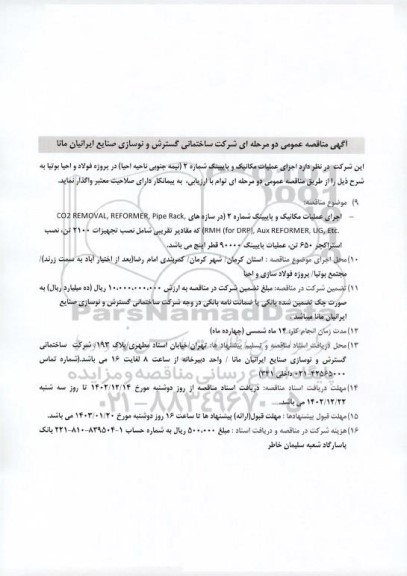 آگهی مناقصه عمومی دو مرحله ای شرکت ساختمانی گسترش و نوسازی صنایع ایرانیان مانا
این شرکت در نظر دارد اجرای عملیات مکانیک و پایپینگ شماره ۲ (نیمه جنوبی ناحیه احیا) در پروژه فولاد و احیا بوتیا به
شرح ذیل را از طریق مناقصه عمومی دو مرحله ای توام با ارزیابی، به پیمانکار دارای صلاحیت معتبر واگذار نماید.
۹) موضوع مناقصه:
- اجرای عملیات مکانیک و پایپینگ شماره ۲ (در سازه های CO2 REMOVAL, REFORMER, Pipe Rack,
RMH (for DRP), Aux REFORMER, UG, Etc.) که مقادیر تقریبی شامل نصب تجهیزات ۲۱۰۰ تن، نصب
استراکچر ۶۵۰ تن، عملیات پایپینگ ۹۰۰۰۰ قطر اینچ می باشد.
۱۰) محل اجرای موضوع مناقصه : استان کرمان/ شهر کرمان/ کمربندی امام رضا(بعد از اختیار آباد به سمت زرند)/
مجتمع بوتیا/ پروژه فولاد سازی و احیا
۱۱) تضمین شرکت در مناقصه: مبلغ تضمین شرکت در مناقصه به ارزش ۱۰,۰۰۰,۰۰۰,۰۰۰ ریال (ده میلیارد ریال) به
صورت چک تضمین شده بانکی یا ضمانت نامه بانکی در وجه شرکت ساختمانی گسترش و نوسازی صنایع
ایرانیان مانا میباشد.
۱۲) مدت زمان انجام کار: ۱۴ ماه شمسی (چهارده ماه)
۱۳) محل دریافت اسناد مناقصه و تسلیم پیشنهاد ها: تهران خیابان استاد مطهری/پلاک ۱۹۳/ شرکت ساختمانی
گسترش و نوسازی صنایع ایرانیان مانا / واحد دبیرخانه از ساعت ۸ لغایت ۱۶ می باشد.(شماره تماس
۰۲۱-۲۲۵۶۵۰۰۰ داخلی ۳۴۱)
۱۴) مهلت دریافت اسناد مناقصه: دریافت اسناد مناقصه از روز دوشنبه مورخ ۱۴۰۲/۱۲/۱۴ تا روز سه شنبه
۱۴۰۲/۱۲/۲۲ می باشد.
۱۵) مهلت قبول پیشنهادها : مهلت قبول(ارائه) پیشنهاد ها تا ساعت ۱۶ روز دوشنبه مورخ ۱۴۰۳/۰۱/۲۰ می باشد.
۱۶) هزینه شرکت در مناقصه و دریافت اسناد : مبلغ ۵۰۰,۰۰۰ ریال به شماره حساب ۱-۸۳۹۵۰۴-۸۱۰-۲۲۱ بانک
پاسارگاد شعبه سلیمان خاطر
ParsNamadData
۰۲۱-۸۸۳۴۹۶۷۰